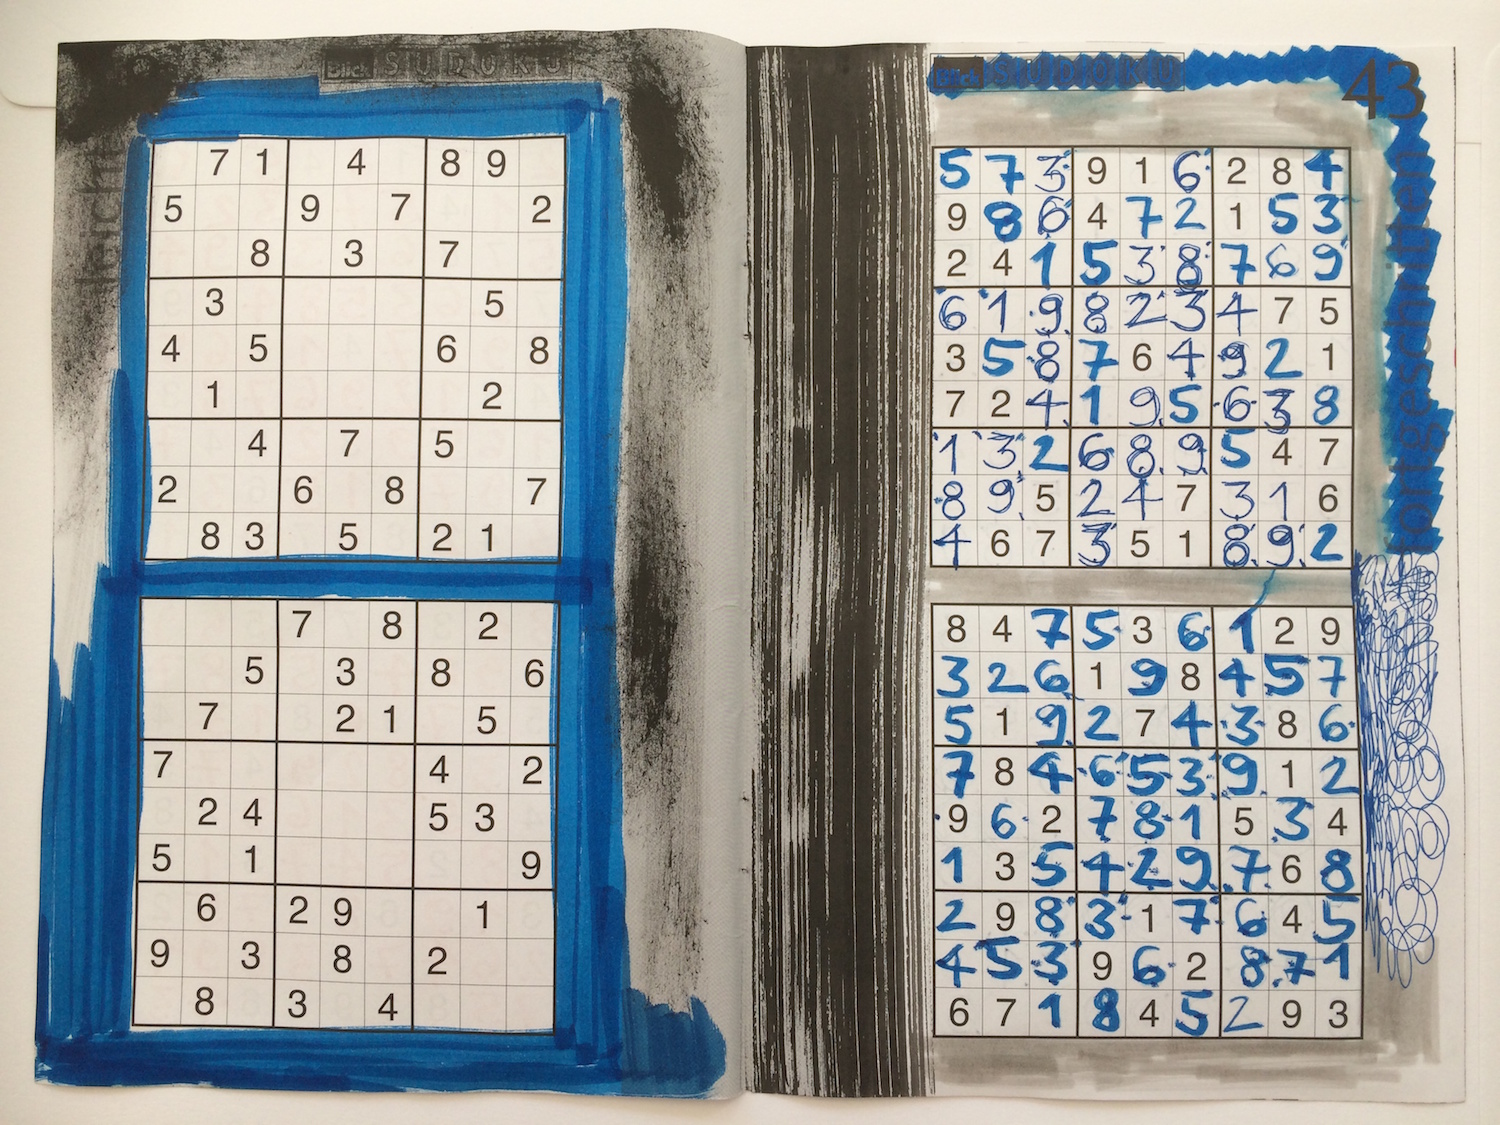 Blick SUDOKU
leicht
7 1 4 8 9
5 9 7 2
8 3 7
3 5
4 5 6 8
1 2
4 7 5
2 6 8 7
8 3 5 2 1
7 8 2
5 3 8 6
7 2 1 5
7 4 2
2 4 5 3
5 1 9
6 2 9 1
9 3 8 2
8 3 4
Blick SUDOKU
43
fortgeschritten
5 7 3 9 1 6 2 8 4
9 8 6 4 7 2 1 5 3
2 4 1 5 3 8 7 6 9
6 1 9 8 2 3 4 7 5
3 5 8 7 6 4 9 2 1
7 2 4 1 9 5 6 3 8
1 3 2 6 8 9 5 4 7
8 9 5 2 4 7 3 1 6
4 6 7 3 5 1 8 9 2
8 4 7 5 3 6 1 2 9
3 2 6 1 9 8 4 5 7
5 1 9 2 7 4 3 8 6
7 8 4 6 5 3 9 1 2
9 6 2 7 8 1 5 3 4
1 3 5 4 2 9 7 6 8
2 9 8 3 1 7 6 4 5
4 5 3 9 6 2 8 7 1
6 7 1 8 4 5 2 9 3